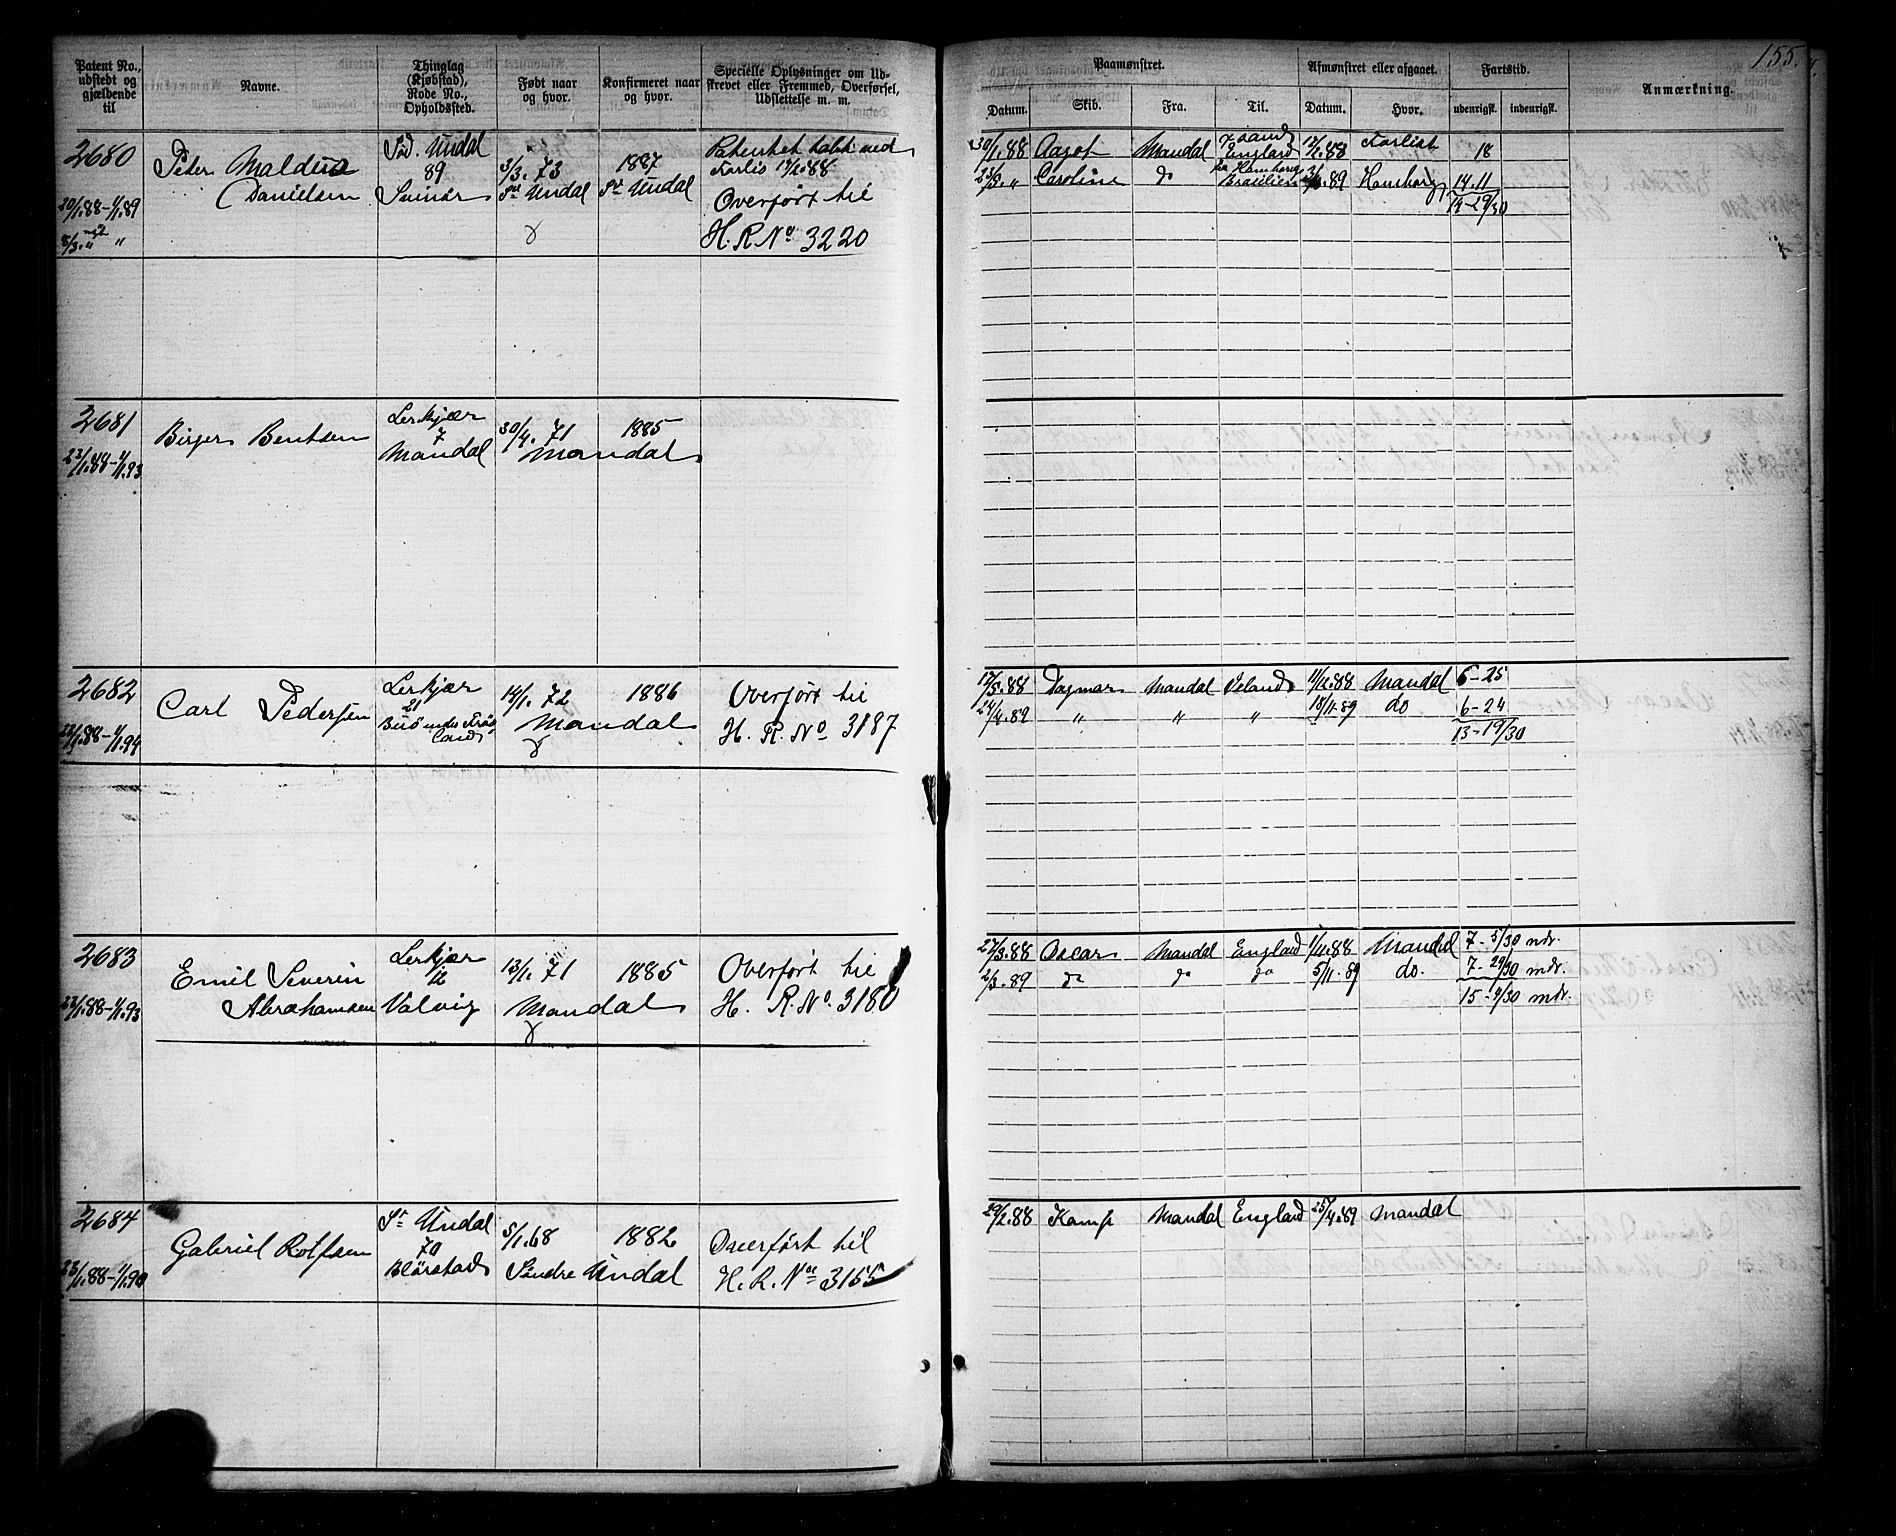 155.
Patent No., udstedt og gjældende til
Navne.
Thinglag (Kjøbstad), Rode No., Opholdssted.
Født naar og hvor.
Konfirmeret naar og hvor.
Specielle Oplysninger om Udskrevet eller Fremmed, Overførsel, Udslettelse m. m.
Paamønstret.
Afmønstret eller afgaaet.
Fartstid.
Anmærkning.
Datum. Skib. Fra. Til. Datum. Hvor. udenrigsk. indenrigsk.
2680
Peder Maldus
Danielsen
20/1.88-1/1.89
Sød. Undal
89
Svinør
3/3. 73
Sø Undal
1887
Sø Undal
Patentet tabt ved
Forlis 12/2.88
Overført til
H. R. No 3220
30/1.88 Aagot Mandal England 12/2.88 Forlist 18
23/3. " Caroline do Brasilien .89 Hamborg 14.11
14-29/30
2681
Birger Bentsen
23/1.88-1/1.93
Lerkjær
7
Mandal
30/4. 71 1885
Mandal
2682
Carl Pedersen
23/1.88-1/1.94
Lerkjær
21
14/1. 72 1886
Mandal
Overført til
H. R. No 3187
17/5.88 Dagmar Mandal Island 11/12.88 Mandal 6-25
24/4.89 " " " 18/11.89 do 6-24
13-19/30
2683
Emil Severin
Abrahamsen
23/1.88-1/1.93
Lerkjær
12
Valvig
13/1. 71 1885
Mandal
Overført til
H. R. No. 3180
27/3.88 Oscar Mandal England 1/11.88 Mandal 7-5/30 mdr.
2/3.89 do do do 5/11.89 do. 7-29/30 mdr.
15-4/30 mdr.
2684
Gabriel Rolfsen
23/1.88-1/1.90
Sr Undal
70
Blørstad
5/1.68 1882
Søndre Undal
Overført til
H. R. No 3155
29/2.88 Kamp Mandal England 25/4.89 Mandal